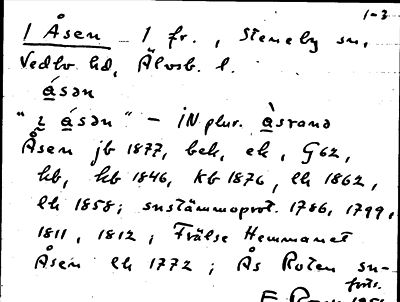 1-3
1 Åsen 1 fr., Steneby sn,
Vedbo hd, Älvsb. l.
ásən
"i ásən" - iN plur. àsrana
Åsen jb 1877, bek, ek, G62,
hb, kb 1846, kb 1876, lh 1862,
lh 1858; sustämmoprot. 1786, 1799,
1811, 1812; Frälse Hemmanet
Åsen lh 1772; Ås Roten sn-
forts.